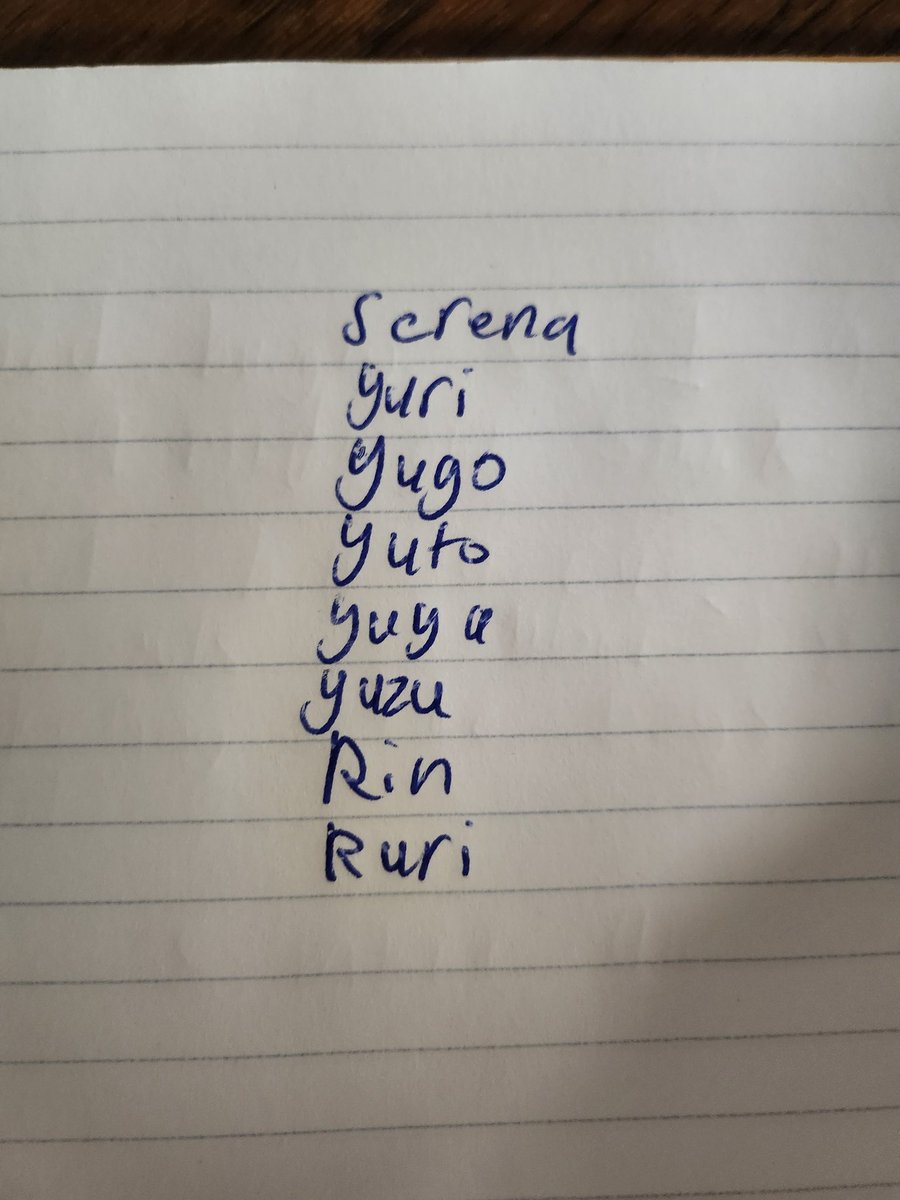 Screna
Yuri
Yugo
Yuto
Yuya
Yuzu
Rin
Ruri